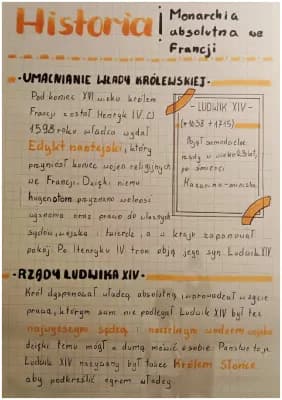 Historia
Monarchia
absolutna we
Francji
•UMACNIANIE WŁADY KRÓLEWSKIEJ•
Pod koniec XVI wieku królem
Francji został Henryk IV. W
1598 roku władca wydał
Edykt nantejski, który
przyniósł koniec wojen religijnych
we Francji. Dzięki niemu
hugenotom przyznano wolność
wyznania oraz prawo do własnych
sądów, wojska i twierdz, a w kraju zapanował
pokój. Po Henryku IV tron objął jego syn Ludwik XIV
- LUDWIK XIV -
(*1638 +1715)
Objął samodzielne
rządy w wieku 23 lat,
po śmierci
Mazarina-ministra
•RZĄDY LUDWIKA XIV•
Król dysponował władzą absolutną, wprowadzał w życie
prawa, którym sam nie podlegał Ludwik XIV był też
najwyższym sędzią i naczelnym wodzem wojska
dzięki temu mógł z dumą mówić o sobie: Państwo to ja
Ludwik XIV nazywany był także Królem Słońce
aby podkreślić ogrom władzy.